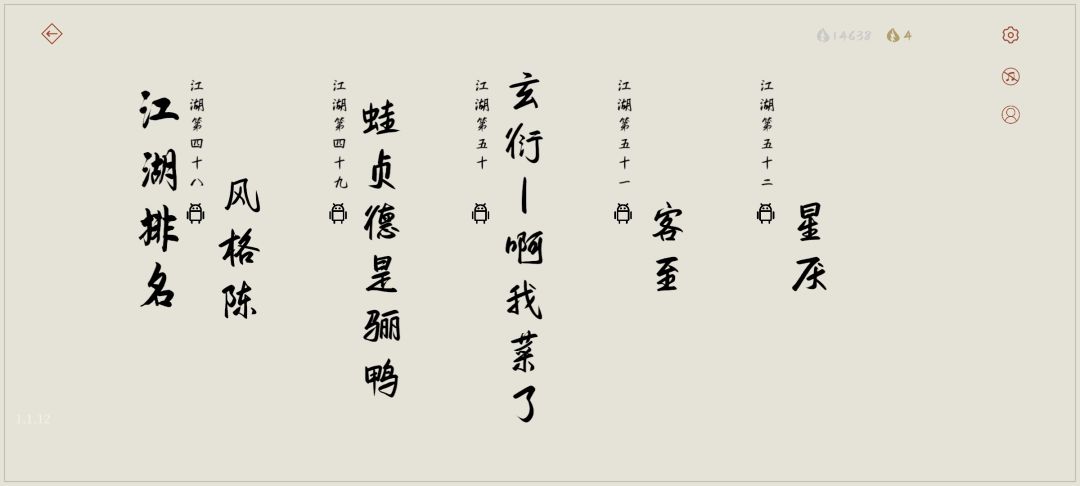 14638
4
江湖排名
江湖第四十八
风格陈
江湖第四十九
蛙贞德是骊鸭
江湖第五十
玄衍丨啊我菜了
江湖第五十一
客至
江湖第五十二
星厌
1.1.12